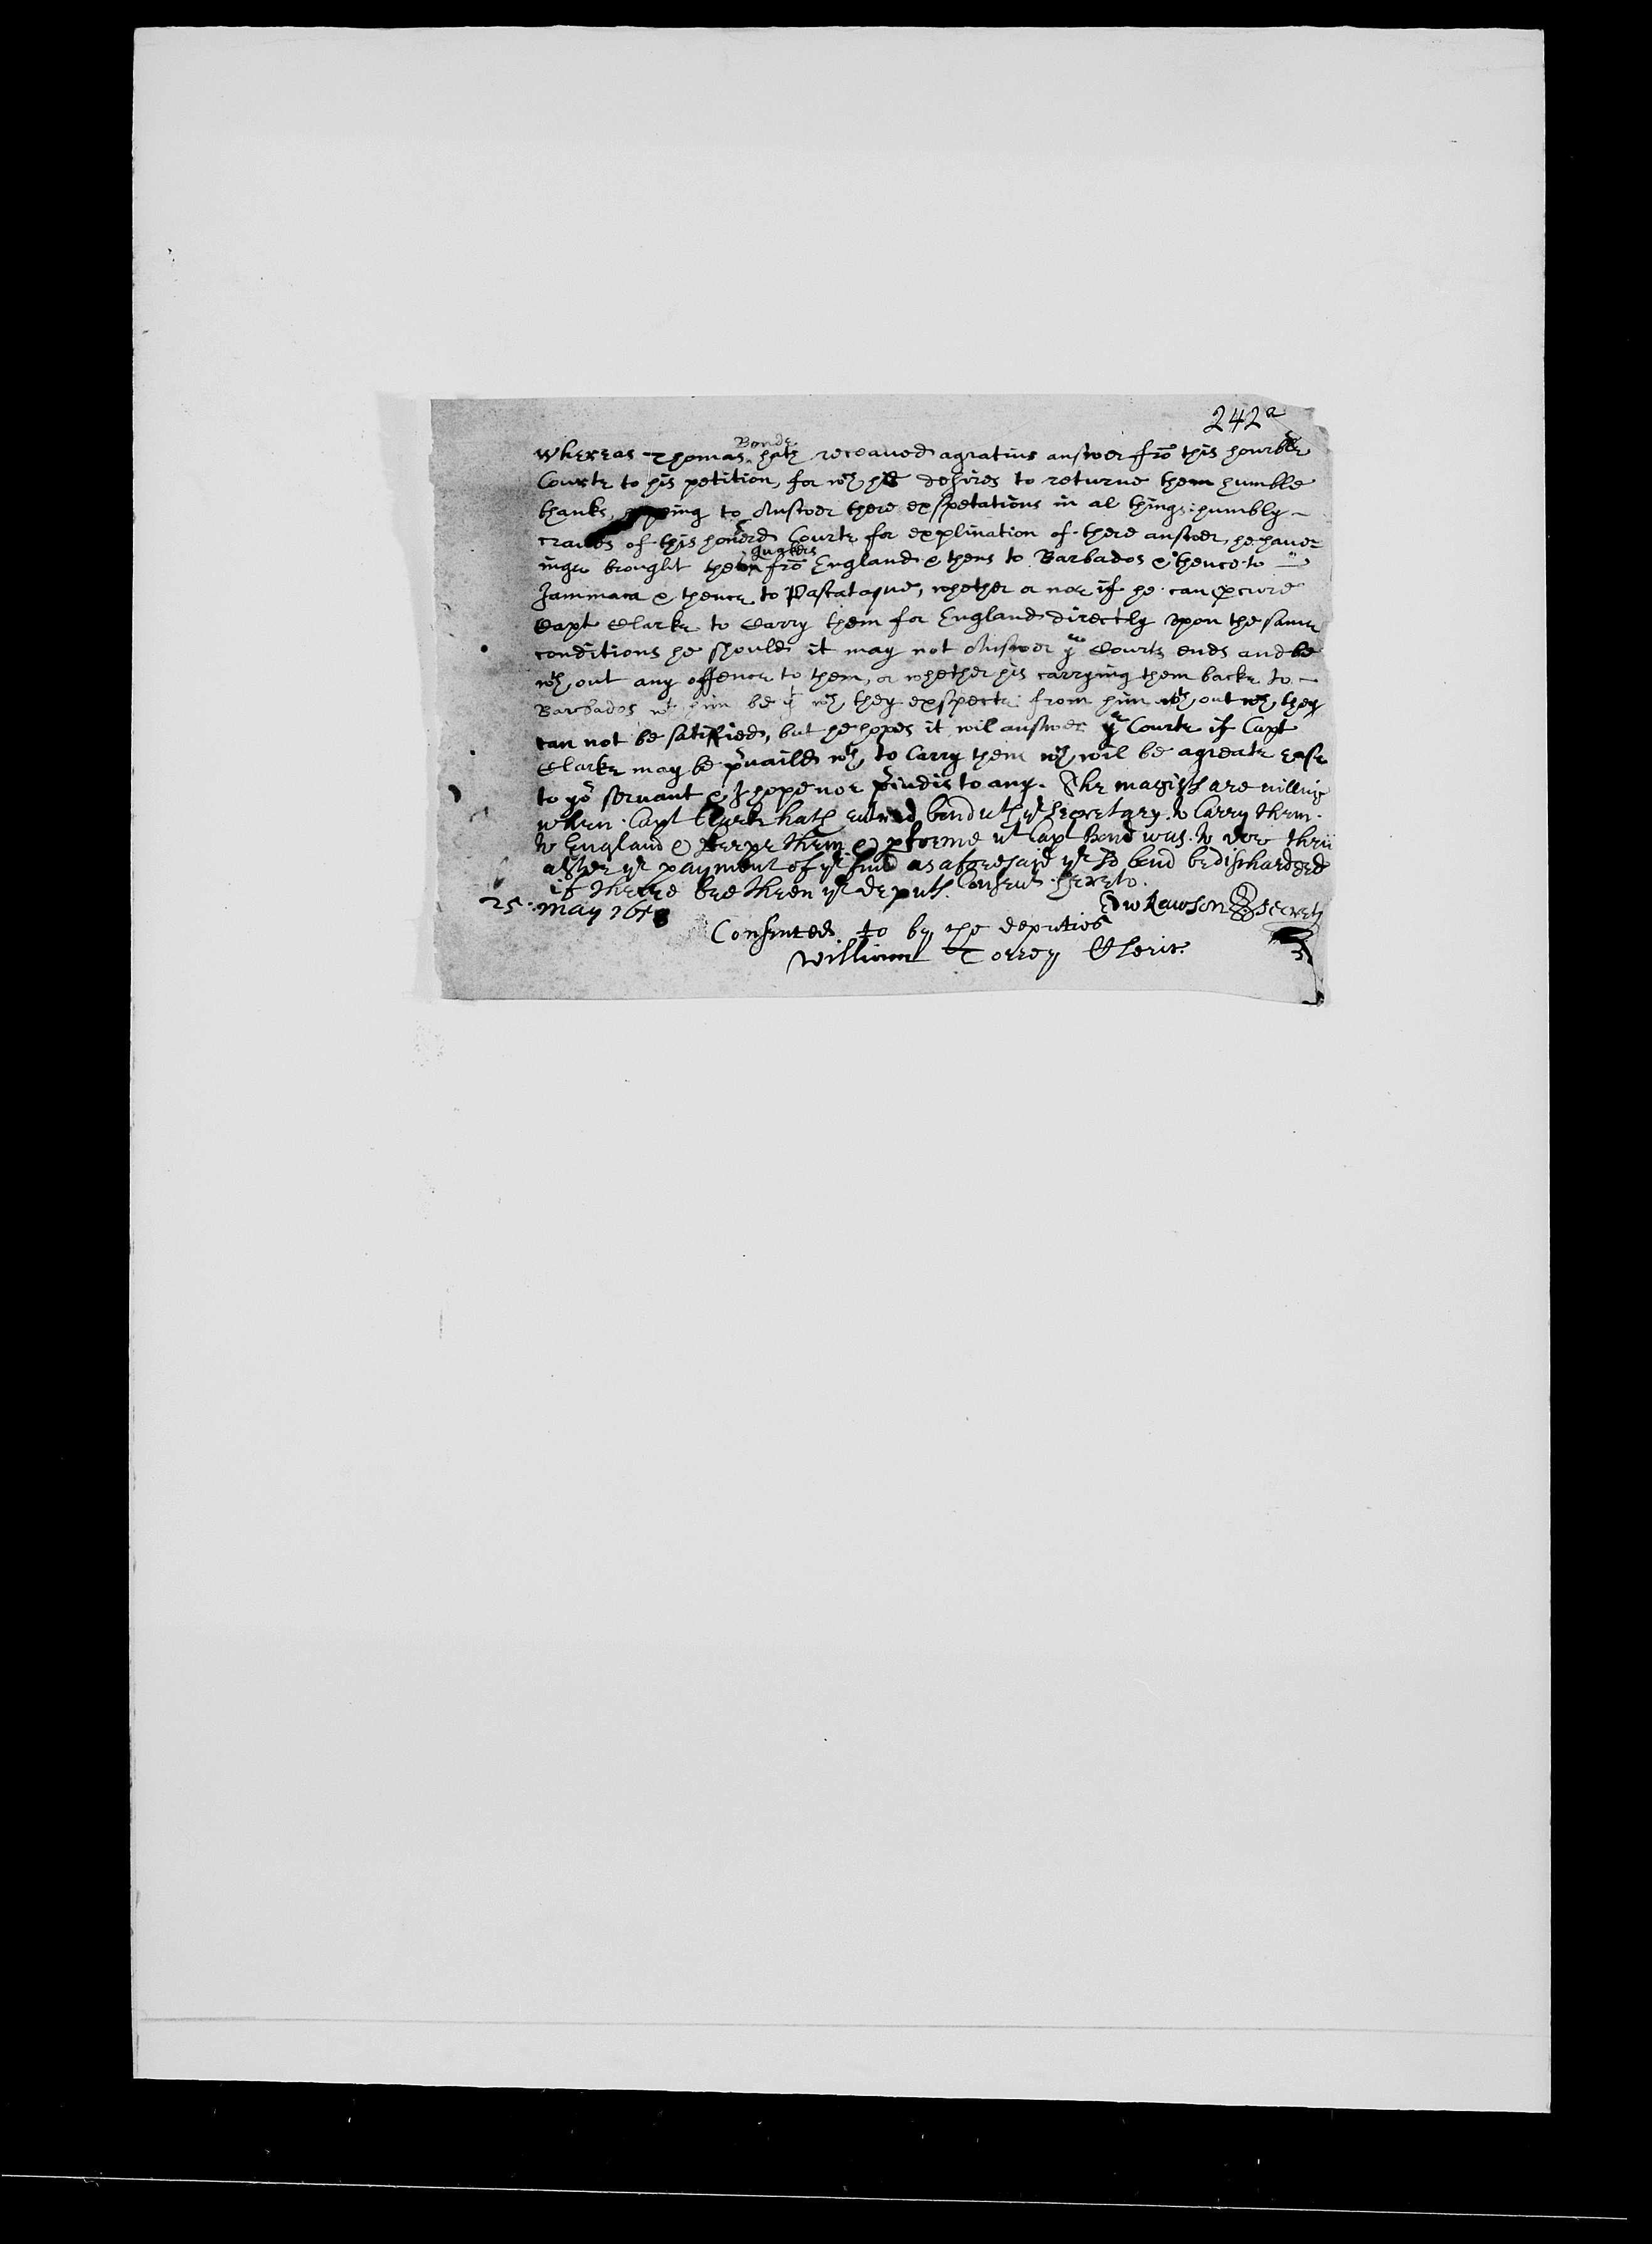 242a
Bonde
Whereas Thomas ^ hath receaued agratius answer frō this hourble
Courte to his petition, for wch hee desires to returne them humble
thanks, hoping to Answer there exspetations in al things: humbly
craues of this honerd Courte for explination of there answer, he haue=
quakers
inge brought them ^ frō England & thens to Barbados & thence to
Jammaca & thence to Pascataque, whether or noe if he can procure
Capt Clarke to Carry them for England directly vpon the same
conditions he should it may not Answer ye Courts ends and be
wth out any offence to them, or whether his carrying them backe to
Barbados wth him be yt wch they exspecte from him wth out wch they
can not be satisfied, but he hopes it wil answer ye Courte if Capt
Clarke may be pruaild wth to Carry them wch wil be agreate ease
to yor servant & I hope noe preiudis to any. The magists are willing
when Capt Clarke hath entred bond wth ye Secretary to Carry them
to England & keepe them & pforme wt Capt Bond was to doe then
after ye payment of ye fine as aforesajd ye sd bond be dischardged
if theire brethren ye deputs Consent hereto.
25 May 16
Edw Rawson Secrety
Consented to by the deputies
William Torrey Cleric.